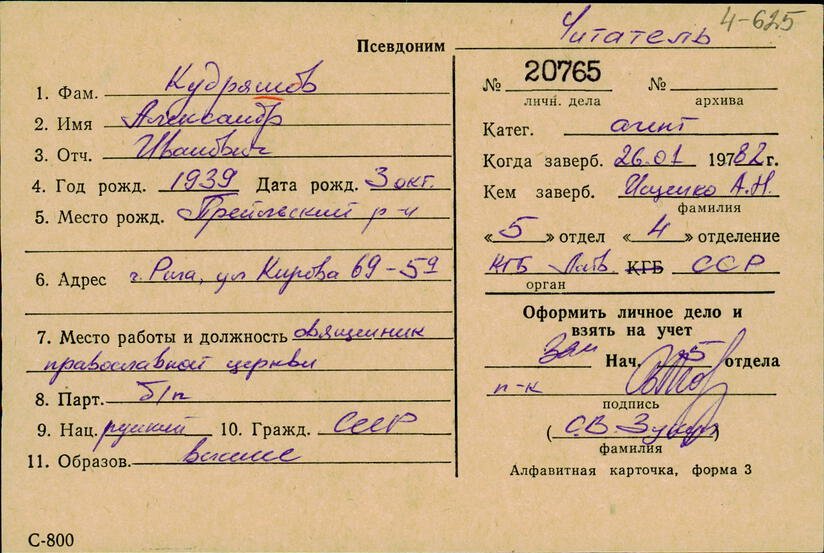 4-625
Псевдоним Читатель
1. Фам. Кудряшов
2. Имя Александр
3. Отч. Иванович
4. Год рожд. 1939 Дата рожд. 3 окт.
5. Место рожд. Прейльский р-н
6. Адрес г. Рига, ул Кирова 69-59
7. Место работы и должность священник
православной церкви
8. Парт. б/п
9. Нац. русский 10. Гражд. СССР
11. Образов. высшее
С-800
№ 20765 №
личн. дела архива
Катег. агент
Когда заверб. 26.01 1982 г.
Кем заверб. Ищенко А.Н.
фамилия
«5» отдел «4» отделение
КГБ Латв. КГБ ССР
орган
Оформить личное дело и
взять на учет
Зам Нач. 5 отдела
п-к
подпись
(С.В. )
фамилия
Алфавитная карточка, форма 3